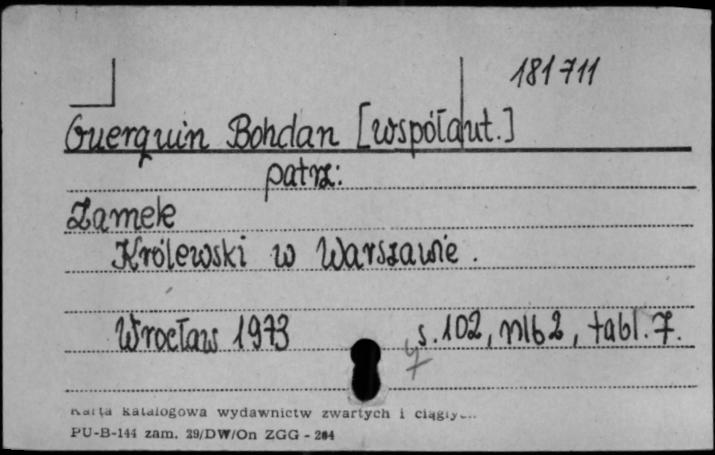 181711
Guerquin Bohdan [współaut.]
patrz:
Zamek
Królewski w Warszawie.
Wrocław 1973 s. 102, nlb 2, tabl. 7.
Karta katalogowa wydawnictw zwartych i ciągłych
PU-B-144 zam. 29/DW/On ZGG - 204